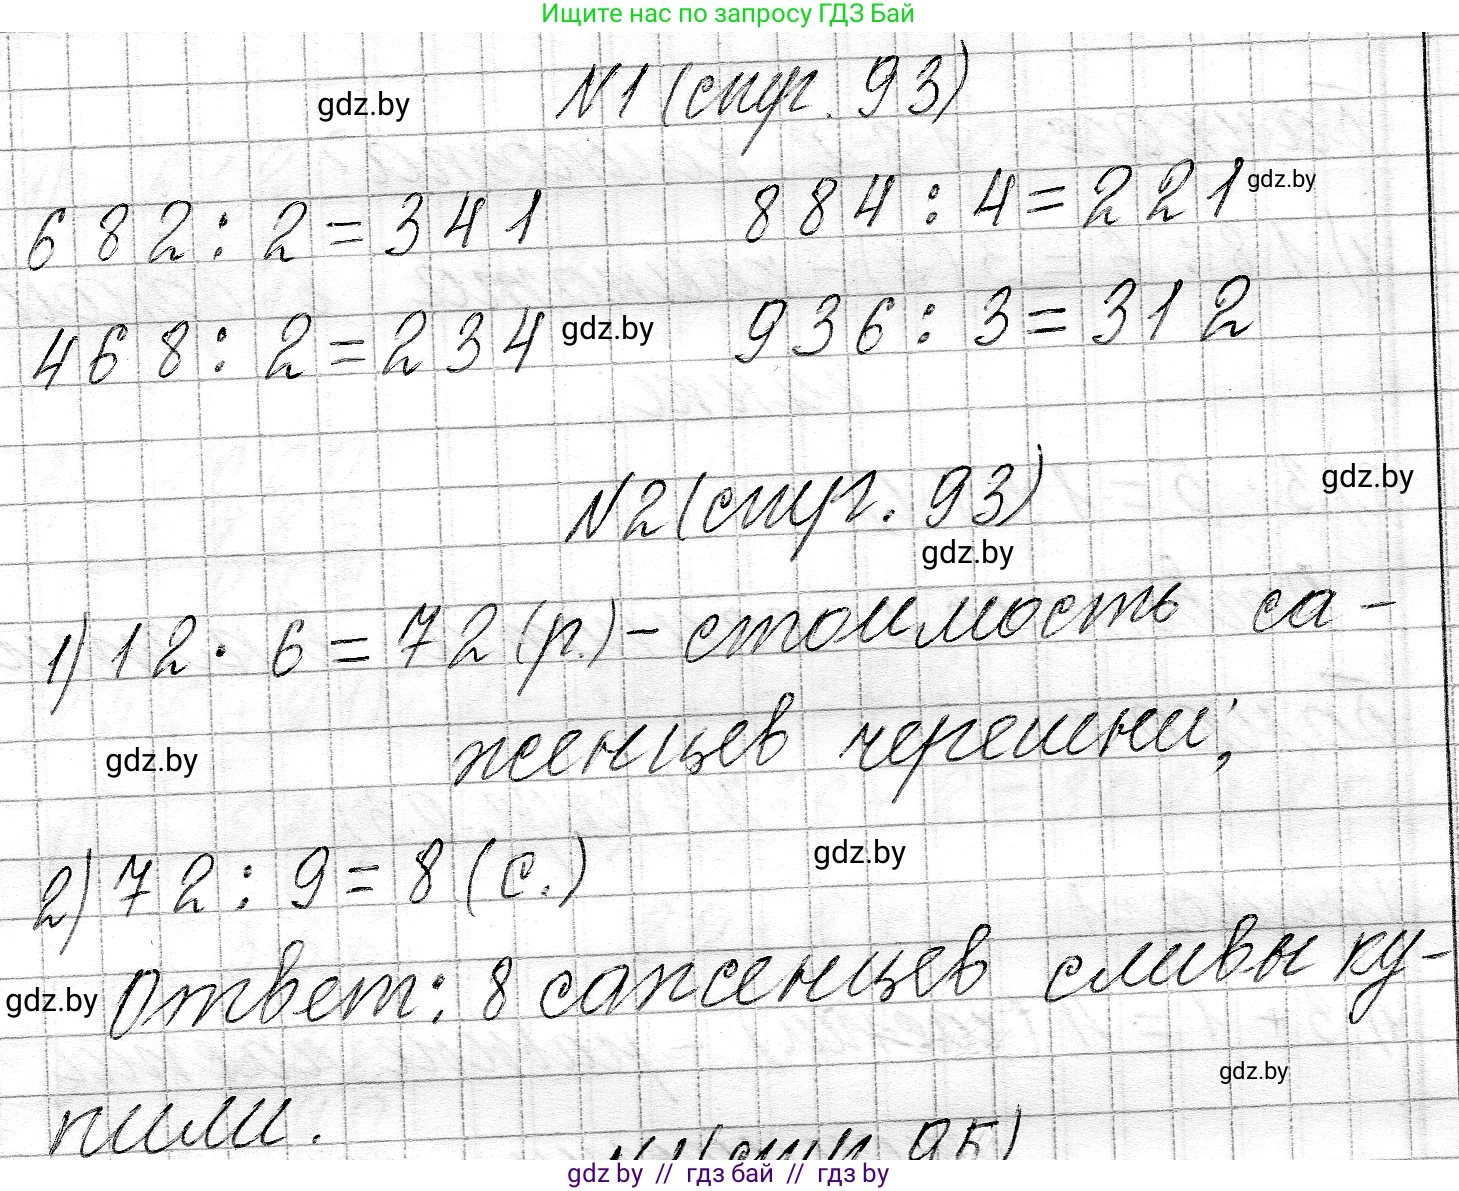 Ищите нас по запросу ГДЗ Бай
№1 (стр. 93)
gdz.by
682 : 2 = 341 884 : 4 = 221 gdz.by
468 : 2 = 234 gdz.by 936 : 3 = 312
№2 (стр. 93) gdz.by
gdz.by
1) 12 · 6 = 72 (р.) - стоимость са-
женцев черешни;
gdz.by
2) 72 : 9 = 8 (с.) gdz.by
gdz.by Ответ: 8 саженцев сливы ку-
gdz.by
пили.
№1 (стр. 95)
gdz.by // гдз бай // гдз by